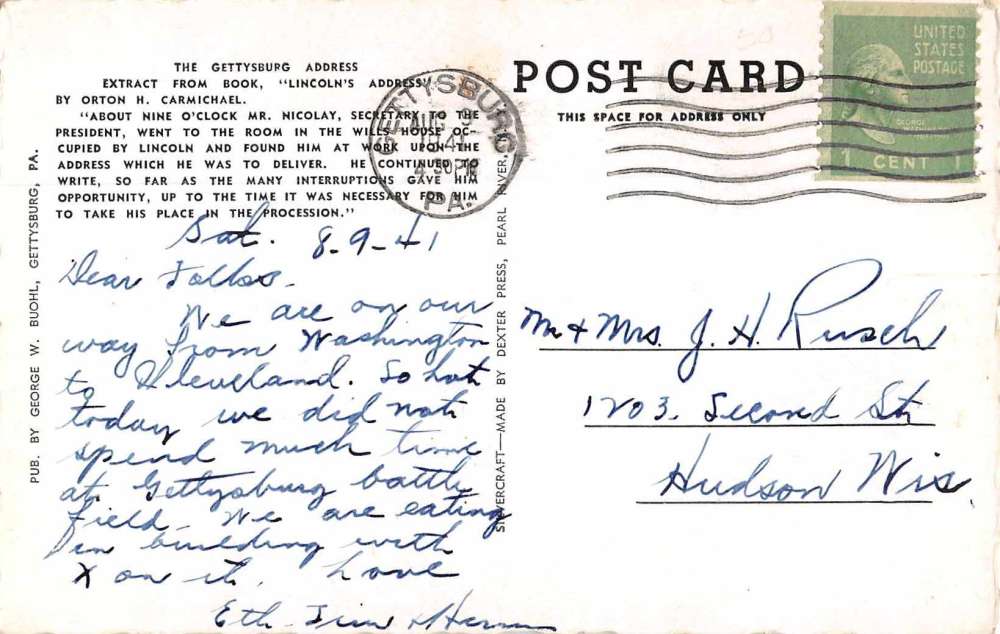 THE GETTYSBURG ADDRESS
EXTRACT FROM BOOK, "LINCOLN'S ADDRESS"
BY ORTON H. CARMICHAEL.
"ABOUT NINE O'CLOCK MR. NICOLAY, SECRETARY TO THE
PRESIDENT, WENT TO THE ROOM IN THE WILLS HOUSE OC-
CUPIED BY LINCOLN AND FOUND HIM AT WORK UPON THE
ADDRESS WHICH HE WAS TO DELIVER. HE CONTINUED TO
WRITE, SO FAR AS THE MANY INTERRUPTIONS GAVE HIM
OPPORTUNITY, UP TO THE TIME IT WAS NECESSARY FOR HIM
TO TAKE HIS PLACE IN THE PROCESSION."
PUB. BY GEORGE W. BUOHL, GETTYSBURG, PA.
Sat. 8-9-41
Dear Folks-
We are on our
way from Washington
to Cleveland. So hot
today we did not
spend much time
at Gettysburg battle
field- We are eating
in building with
X on it. Love
Eth- Jim
SILVERCRAFT—MADE BY DEXTER PRESS, PEARL RIVER,
GETTYSBURG
AUG 9
1941
4-30PM
PA.
POST CARD
THIS SPACE FOR ADDRESS ONLY
UNITED
STATES
POSTAGE
GEORGE
WASHINGTON
1 CENT 1
Mr + Mrs. J. H. Rusch
1203. Second St.
Hudson Wis.